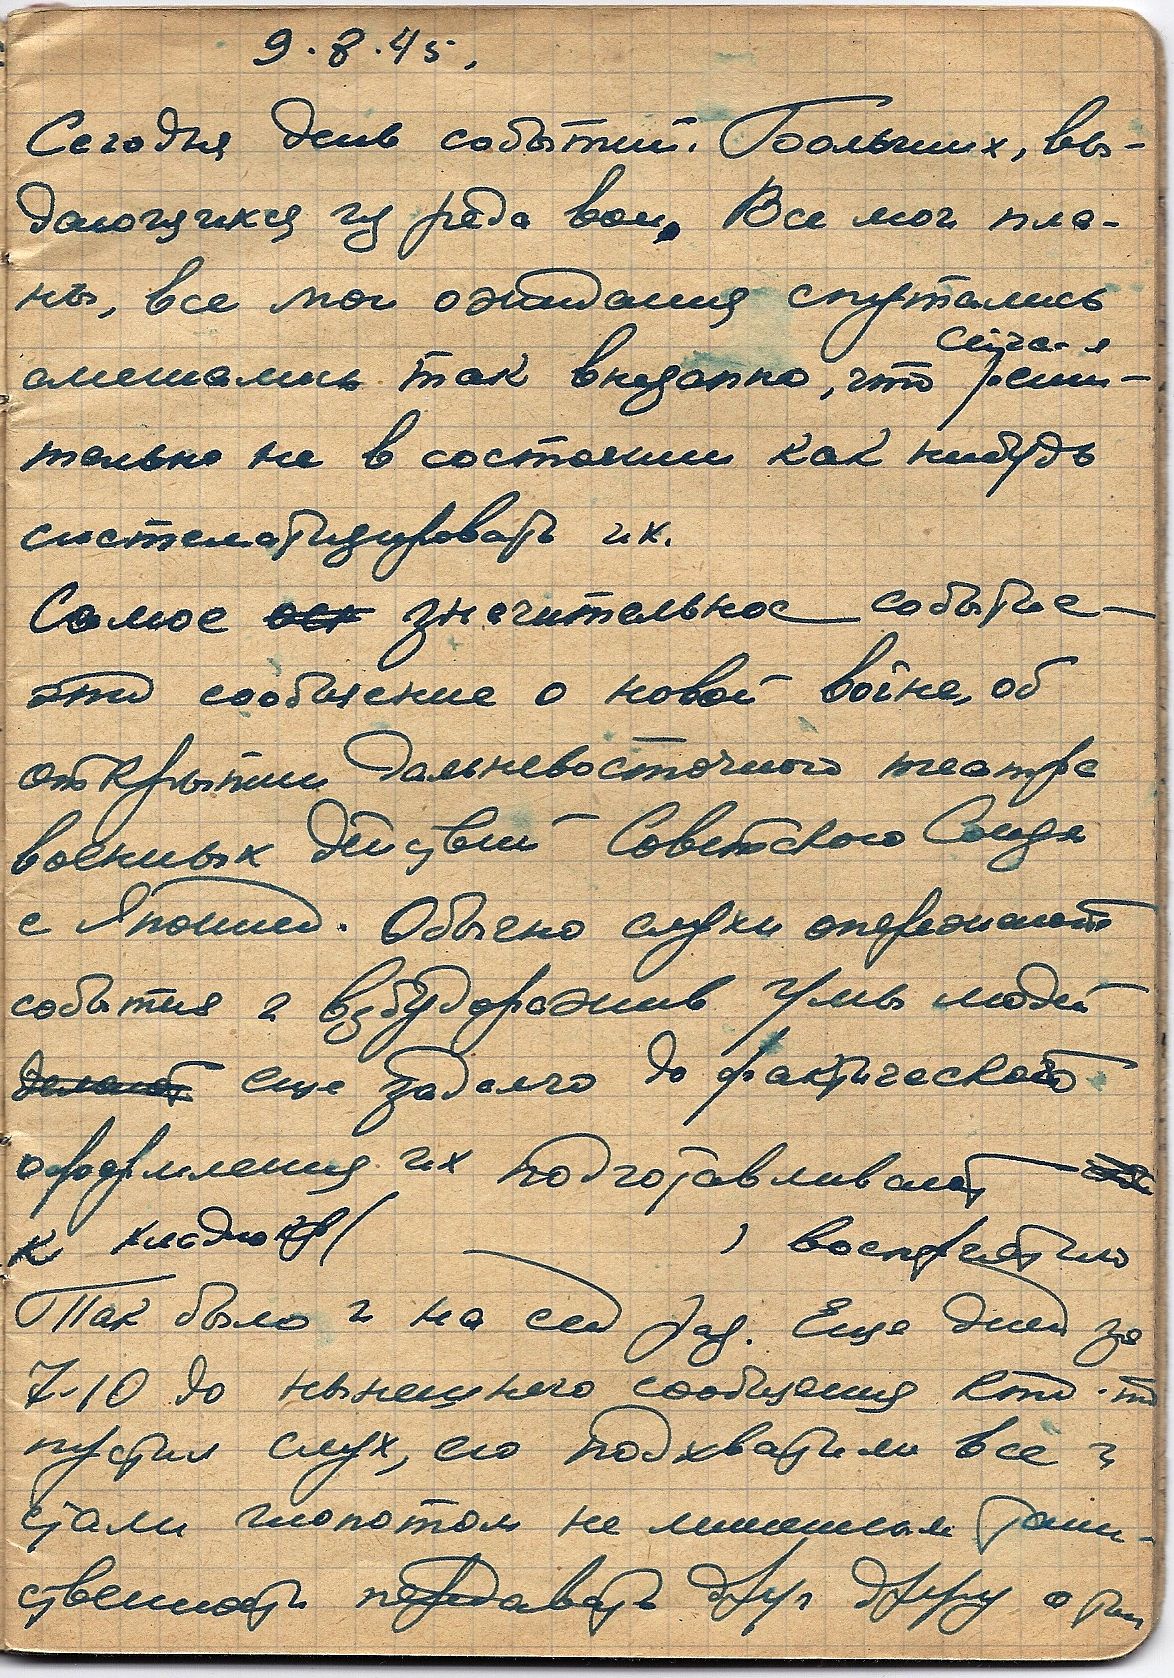 9.8.45.
Сегодня день событий. Больших, вы-
дающихся из ряда вон. Все мои пла-
ны, все мои ожидания спутались
сейчас я
смешались так внезапно, что реши-
тельно не в состоянии как нибудь
систематизировать их.
Самое значительное событие —
это сообщение о новой войне, об
открытии Дальневосточного театра
военных действий Советского Союза
с Японией. Обычно слухи опережают
события и взбудоражив умы людей
делают еще задолго до фактического
оформления их подготавливают
к хладнокр( ) восприятию
Так было и на сей раз. Еще дней за
7-10 до нынешнего сообщения кто-то
пустил слух, его подхватили все и
стали шопотом не лишенным таин-
ственности передавать друг другу о